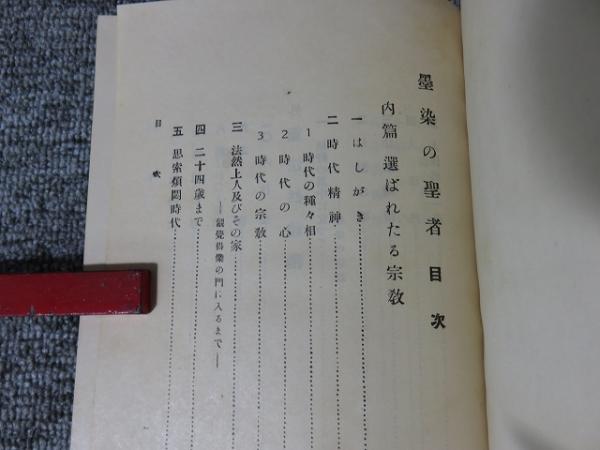 墨染の聖者 目次
内篇 選ばれたる宗教
一 はしがき
二 時代精神
1 時代の種々相
2 時代の心
3 時代の宗教
三 法然上人及びその家
―叡覺得業の門に入るまで―
四 二十四歳まで
五 思索煩悶時代
目次